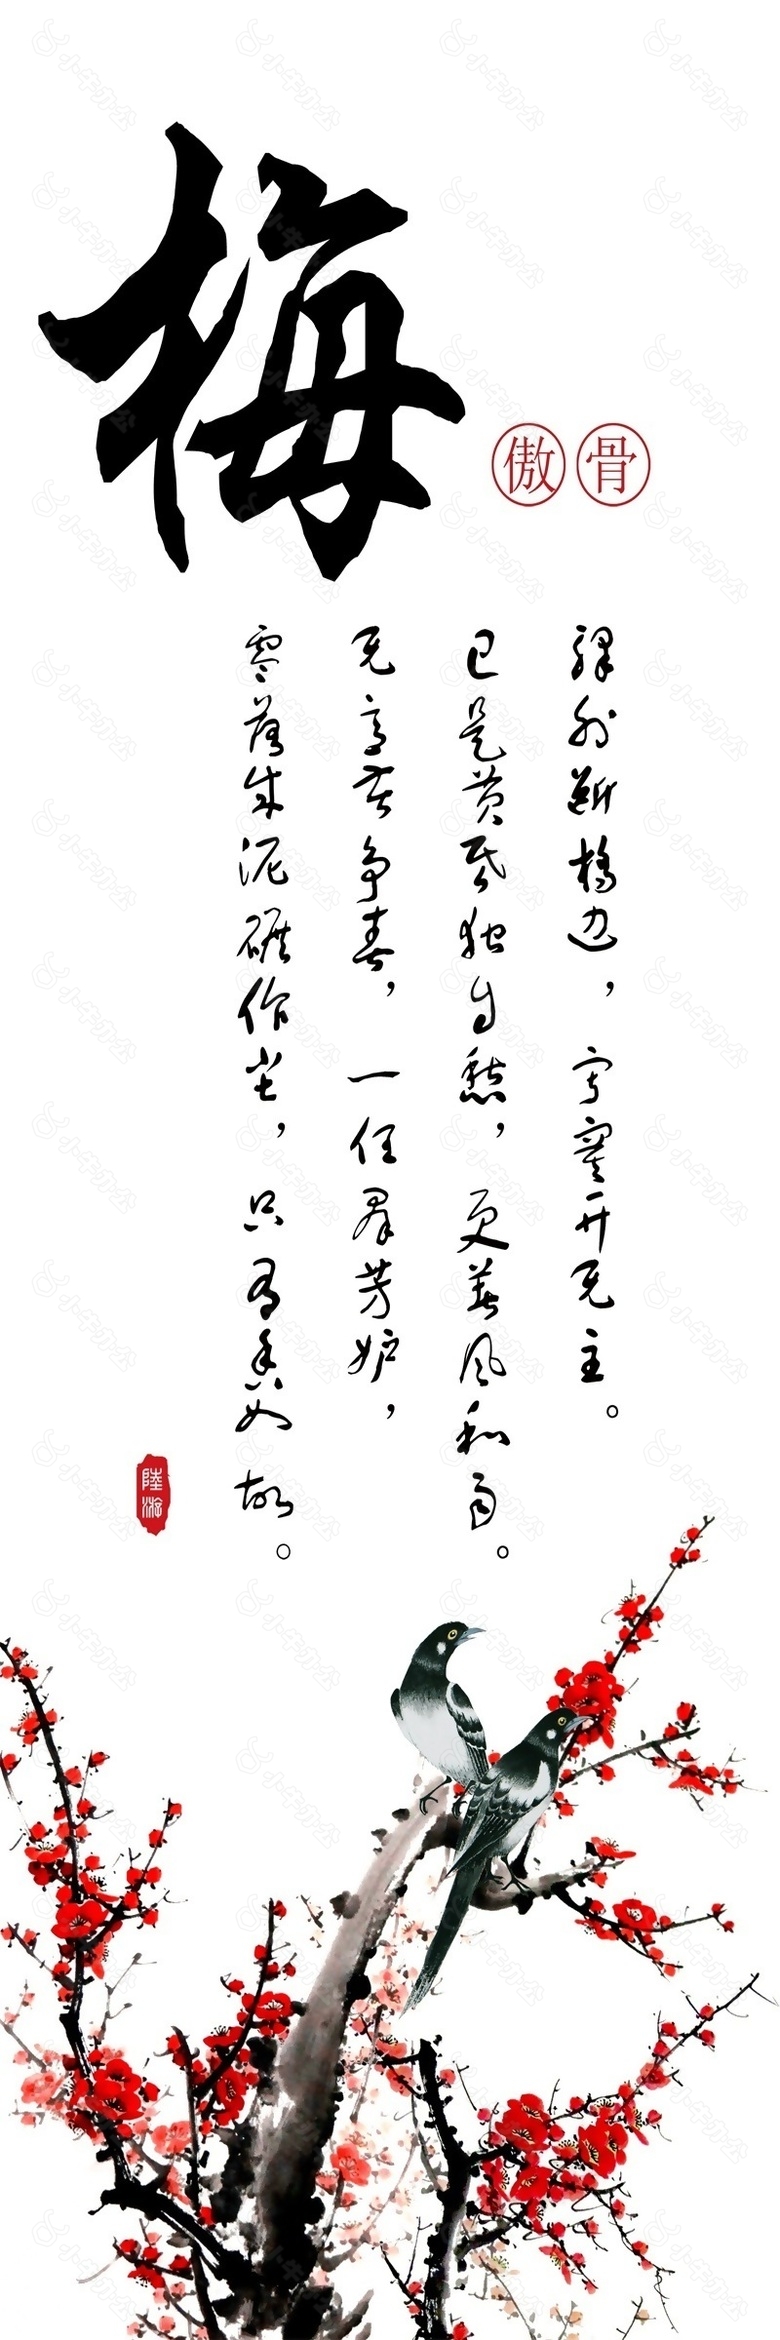 梅
傲骨
驿外断桥边，寂寞开无主。
已是黄昏独自愁，更著风和雨。
无意苦争春，一任群芳妒，
零落成泥碾作尘，只有香如故。
陸游
小牛办公